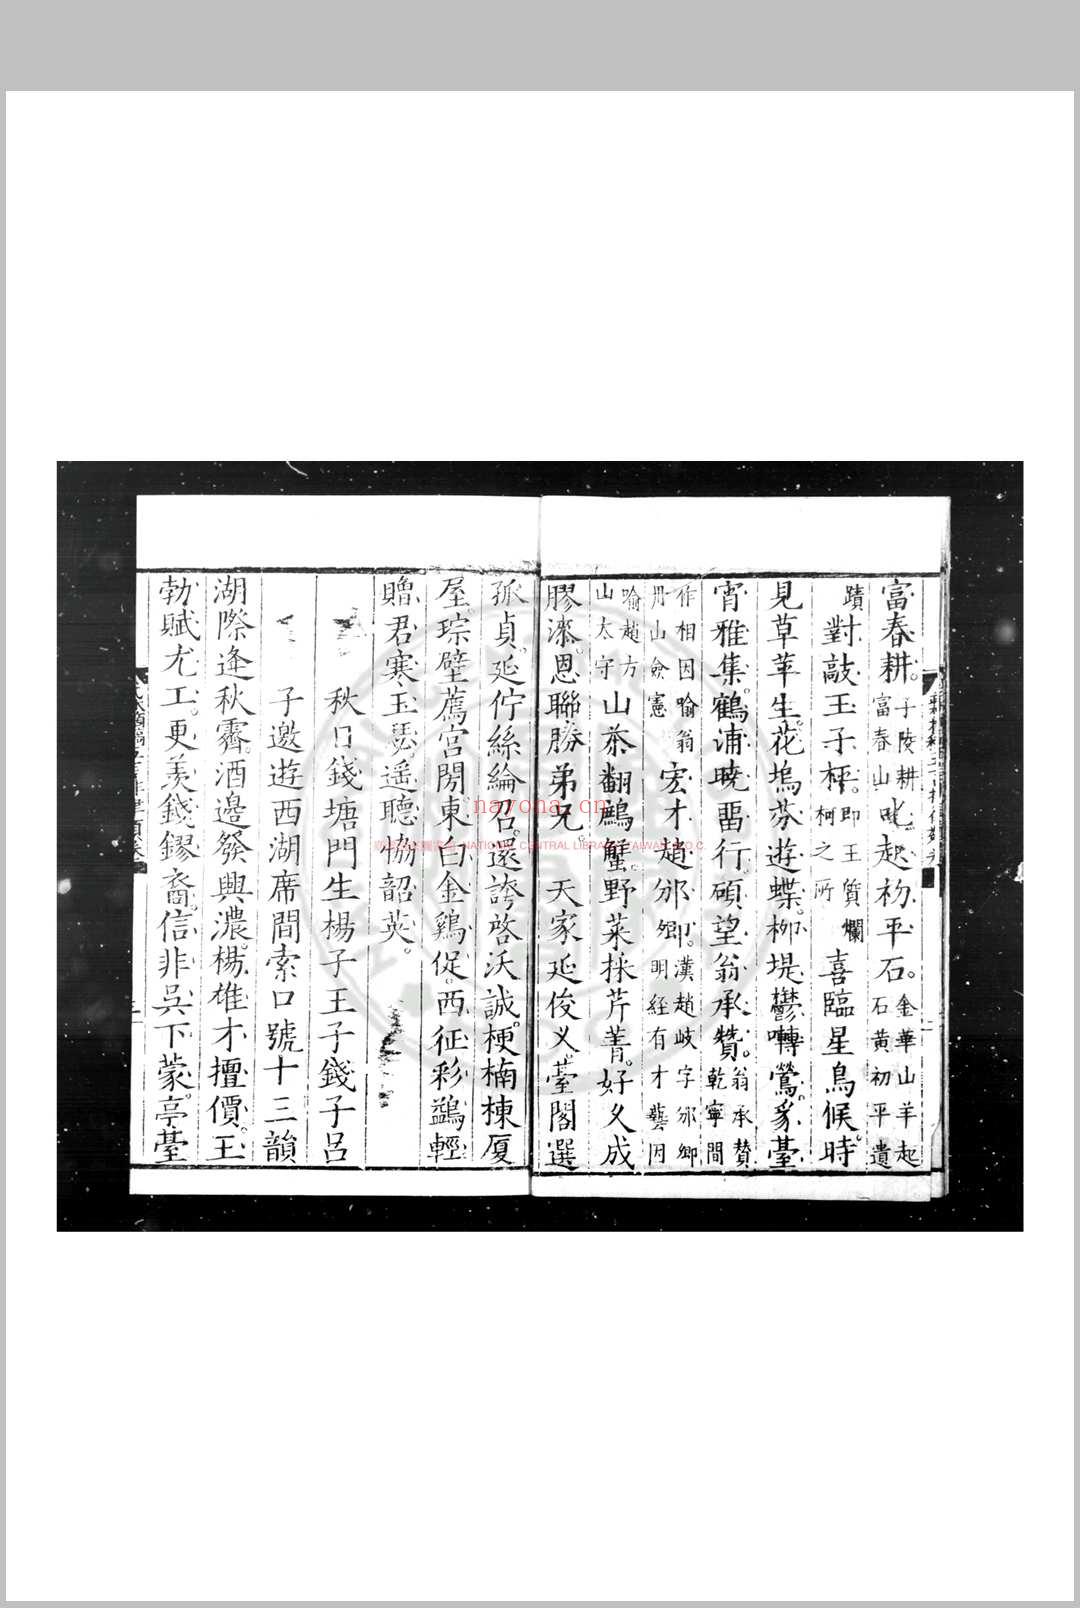 富春耕。子陵耕富春山叱起初平石。金華山羊起石黃初平遺
蹟對敲王子枰。即王質爛柯之所喜臨星鳥候。時
見草莘生。花塢芬遊蝶。柳堤鬱囀鶯。豸臺
宵雅集。鶴浦曉畱行。碩望翁承贊。翁承贊乾寧間
作相因喻翁丹山僉憲宏才趙邠卿。漢趙岐字邠卿明經有才藝因
喻趙方山太守山茶翻鷓蟹。野菜採芹菁。好乂成
膠漆。恩聯勝弟兄。天家延俊乂。臺閣選
孤貞。延佇絲綸召。還誇啓沃誠。梗楠棟厦
屋。琮璧薦宮閍。東白金鷄促。西征彩鷁輕
贈君寒玉瑟。遥聽協韶英。
秋日錢塘門生楊子王子錢子呂
子邀遊西湖席間索口號十三韻
湖際逢秋霽。酒邊發興濃。楊雄才擅價。王
勃賦尤工。更羨錢鏐裔。信非吳下蒙。亭臺
nayona.cn
NATIONAL CENTRAL LIBRARY, TAIWAN, R.O.C.